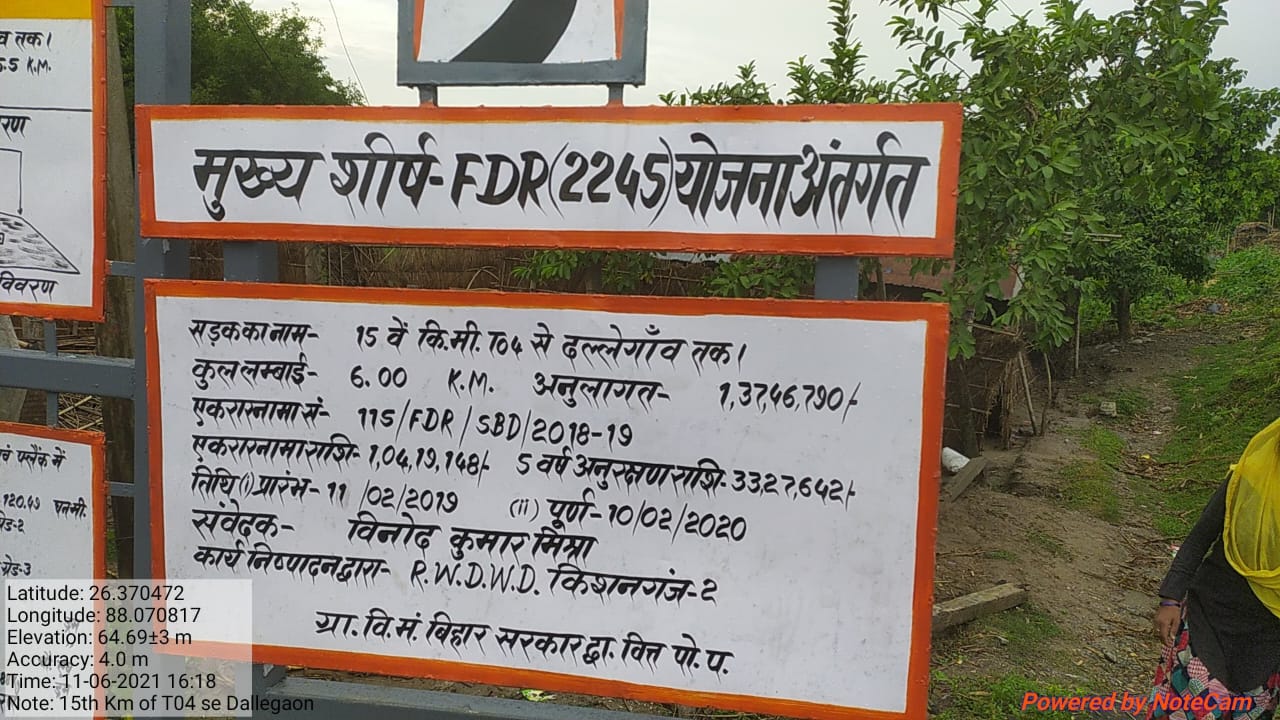 व तक।
5.5 K.M.
रण
विवरण
मुख्य शीर्ष-FDR(2245)योजना अंतर्गत
सड़क का नाम- 15 वें कि.मी. T04 से दल्लेगाँव तक।
कुल लम्बाई- 6.00 K.M. अनुलागत- 1,37,46,790/-
एकरारनामा सं- 115/FDR/SBD/2018-19
एकरारनामा राशि- 1,04,19,148/- 5 वर्ष अनुरक्षण राशि- 33,27,642/-
तिथि (i) प्रारंभ- 11/02/2019 (ii) पूर्ण- 10/02/2020
संवेदक- विनोद कुमार मिश्रा
कार्य निष्पादन द्वारा- R.W.D.W.D. किशनगंज-2
ग्रा. वि. मं. बिहार सरकार द्वा. वित्त पो. प.
में
120.49 घनमी.
ग्रेड-2
ग्रेड-3
Latitude: 26.370472
Longitude: 88.070817
Elevation: 64.69±3 m
Accuracy: 4.0 m
Time: 11-06-2021 16:18
Note: 15th Km of T04 se Dallegaon
Powered by NoteCam